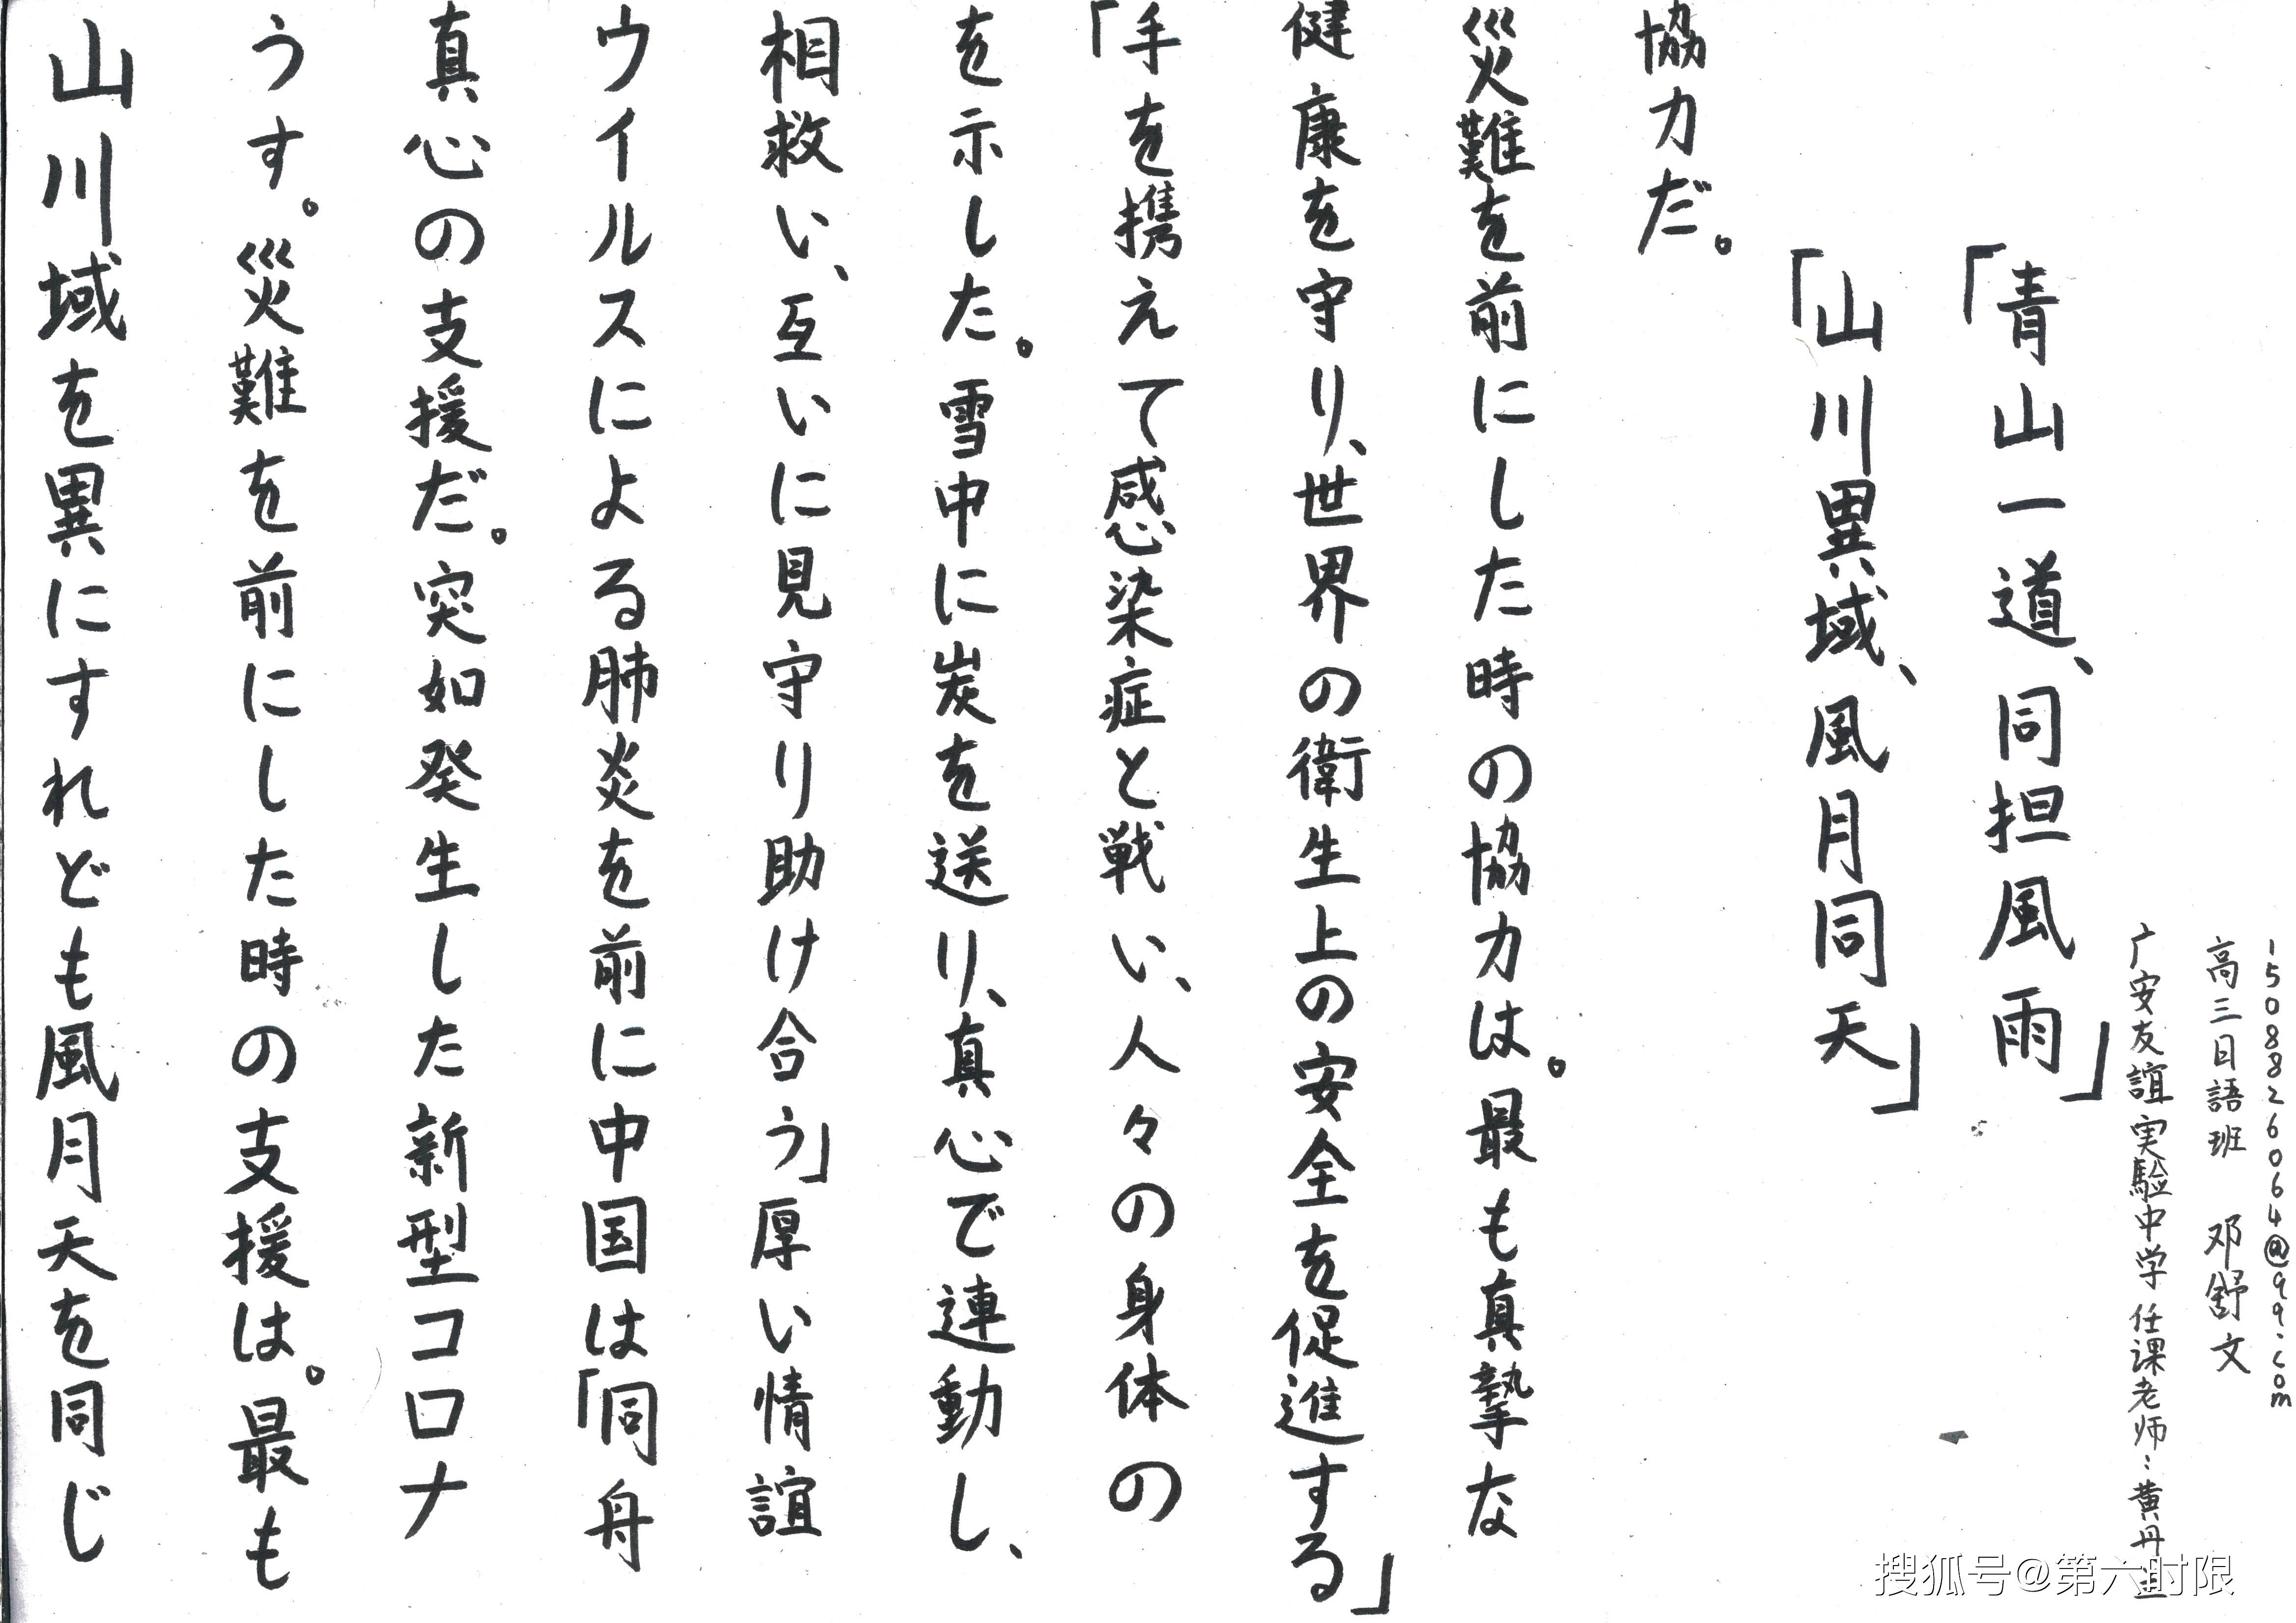 山川域を異にすれども風月天を同じ
うす。災難を前にした時の支援は。最も
真心の支援だ。突如癸生した新型コロナ
ウイルスによる肺炎を前に中国は「同舟
相救い、互いに見守り助け合う」厚い情誼
を示した。雪中に炭を送り、真心で連動し、
「手を携えて感染症と戦い、人々の身体の
健康を守り、世界の衛生上の安全を促進する」
災難を前にした時の協力は。最も真摯な
協力だ。
「山川異域、風月同天」
「青山一道、同担風雨」
广安友誼実験中学 任課老师：黄丹
高三日語班 邓舒文
1508826064@qq.com
搜狐号@第六时限